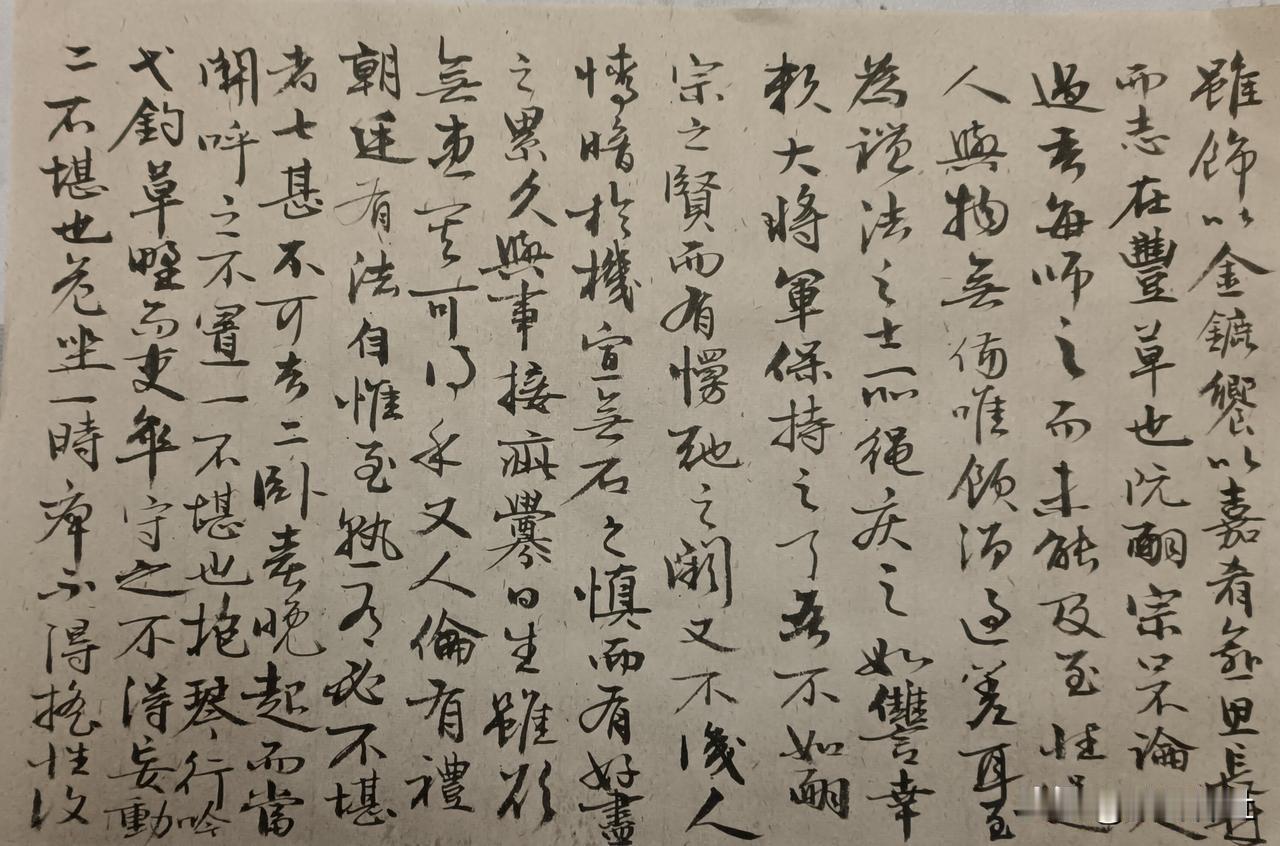 雖飾以金鑣饗以嘉肴愈思長
而志在豐草也阮嗣宗口不論人
過吾每師之而未能及至性過
人與物無傷唯飲酒過差耳至
為禮法之士所繩疾之如讎幸
賴大將軍保持之耳吾不如嗣
宗之賢而有慢弛之闕又不識人
情暗於機宜無石之慎而有好盡
之累久與事接疵釁日生雖欲
無患其可得乎又人倫有禮
朝廷有法自惟至熟有必不堪
者七甚不可者二臥喜晚起而當
關呼之不置一不堪也抱琴行吟
弋釣草野而吏卒守之不得妄動
二不堪也危坐一時痹不得搖性復